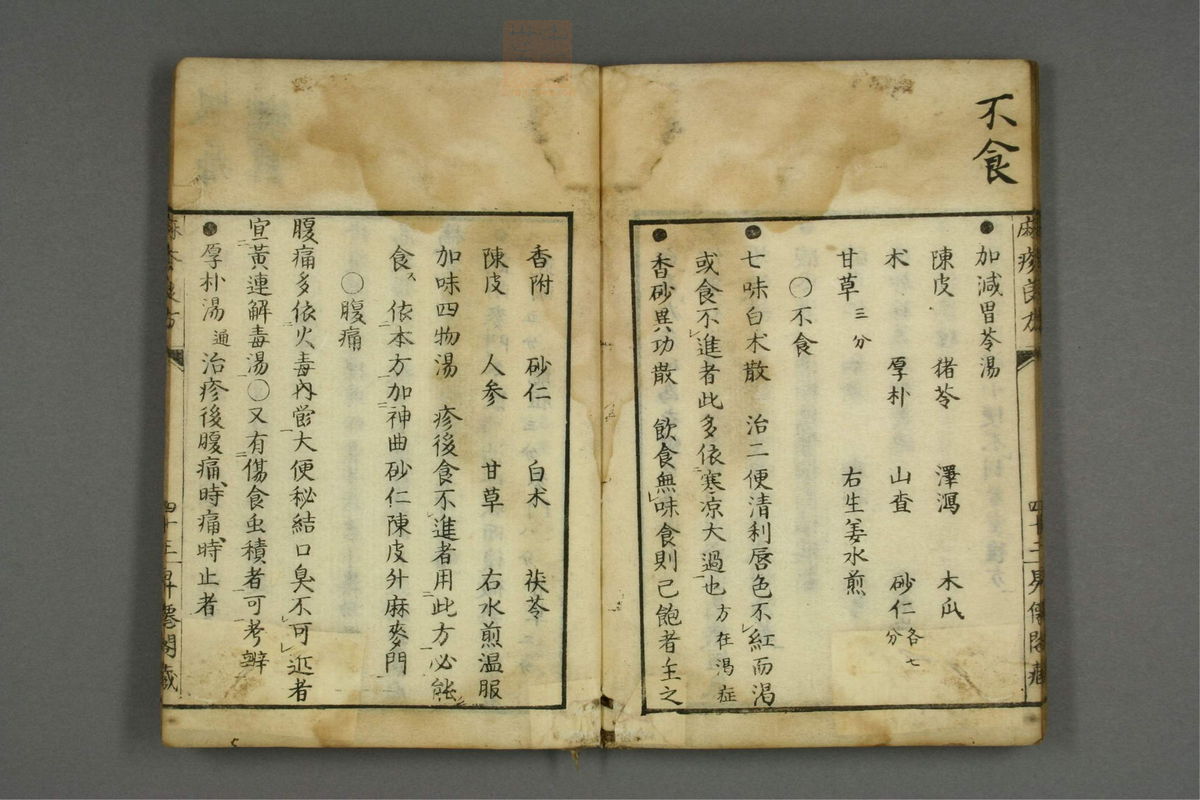 不食
●加減胃苓湯
陳皮 猪苓 澤瀉 木瓜
朮 厚朴 山査 砂仁各七分
甘草三分 右生姜水煎
○不食
●七味白朮散 治二便清利唇色不紅而渇
或食不進者此多依寒凉大過也 方在渇症
●香砂異功散 飲食無味食則已飽者主之
香附 砂仁 白朮 茯苓
陳皮 人参 甘草 右水煎温服
加味四物湯 疹後食不進者用此方必能
食 依本方加神曲砂仁陳皮外麻麥門
○腹痛
腹痛多依火毒内嘗大便秘結口臭不可近者
宜黄連解毒湯○又有傷食虫積者可考辨
●厚朴湯 通治疹後腹痛時痛時止者